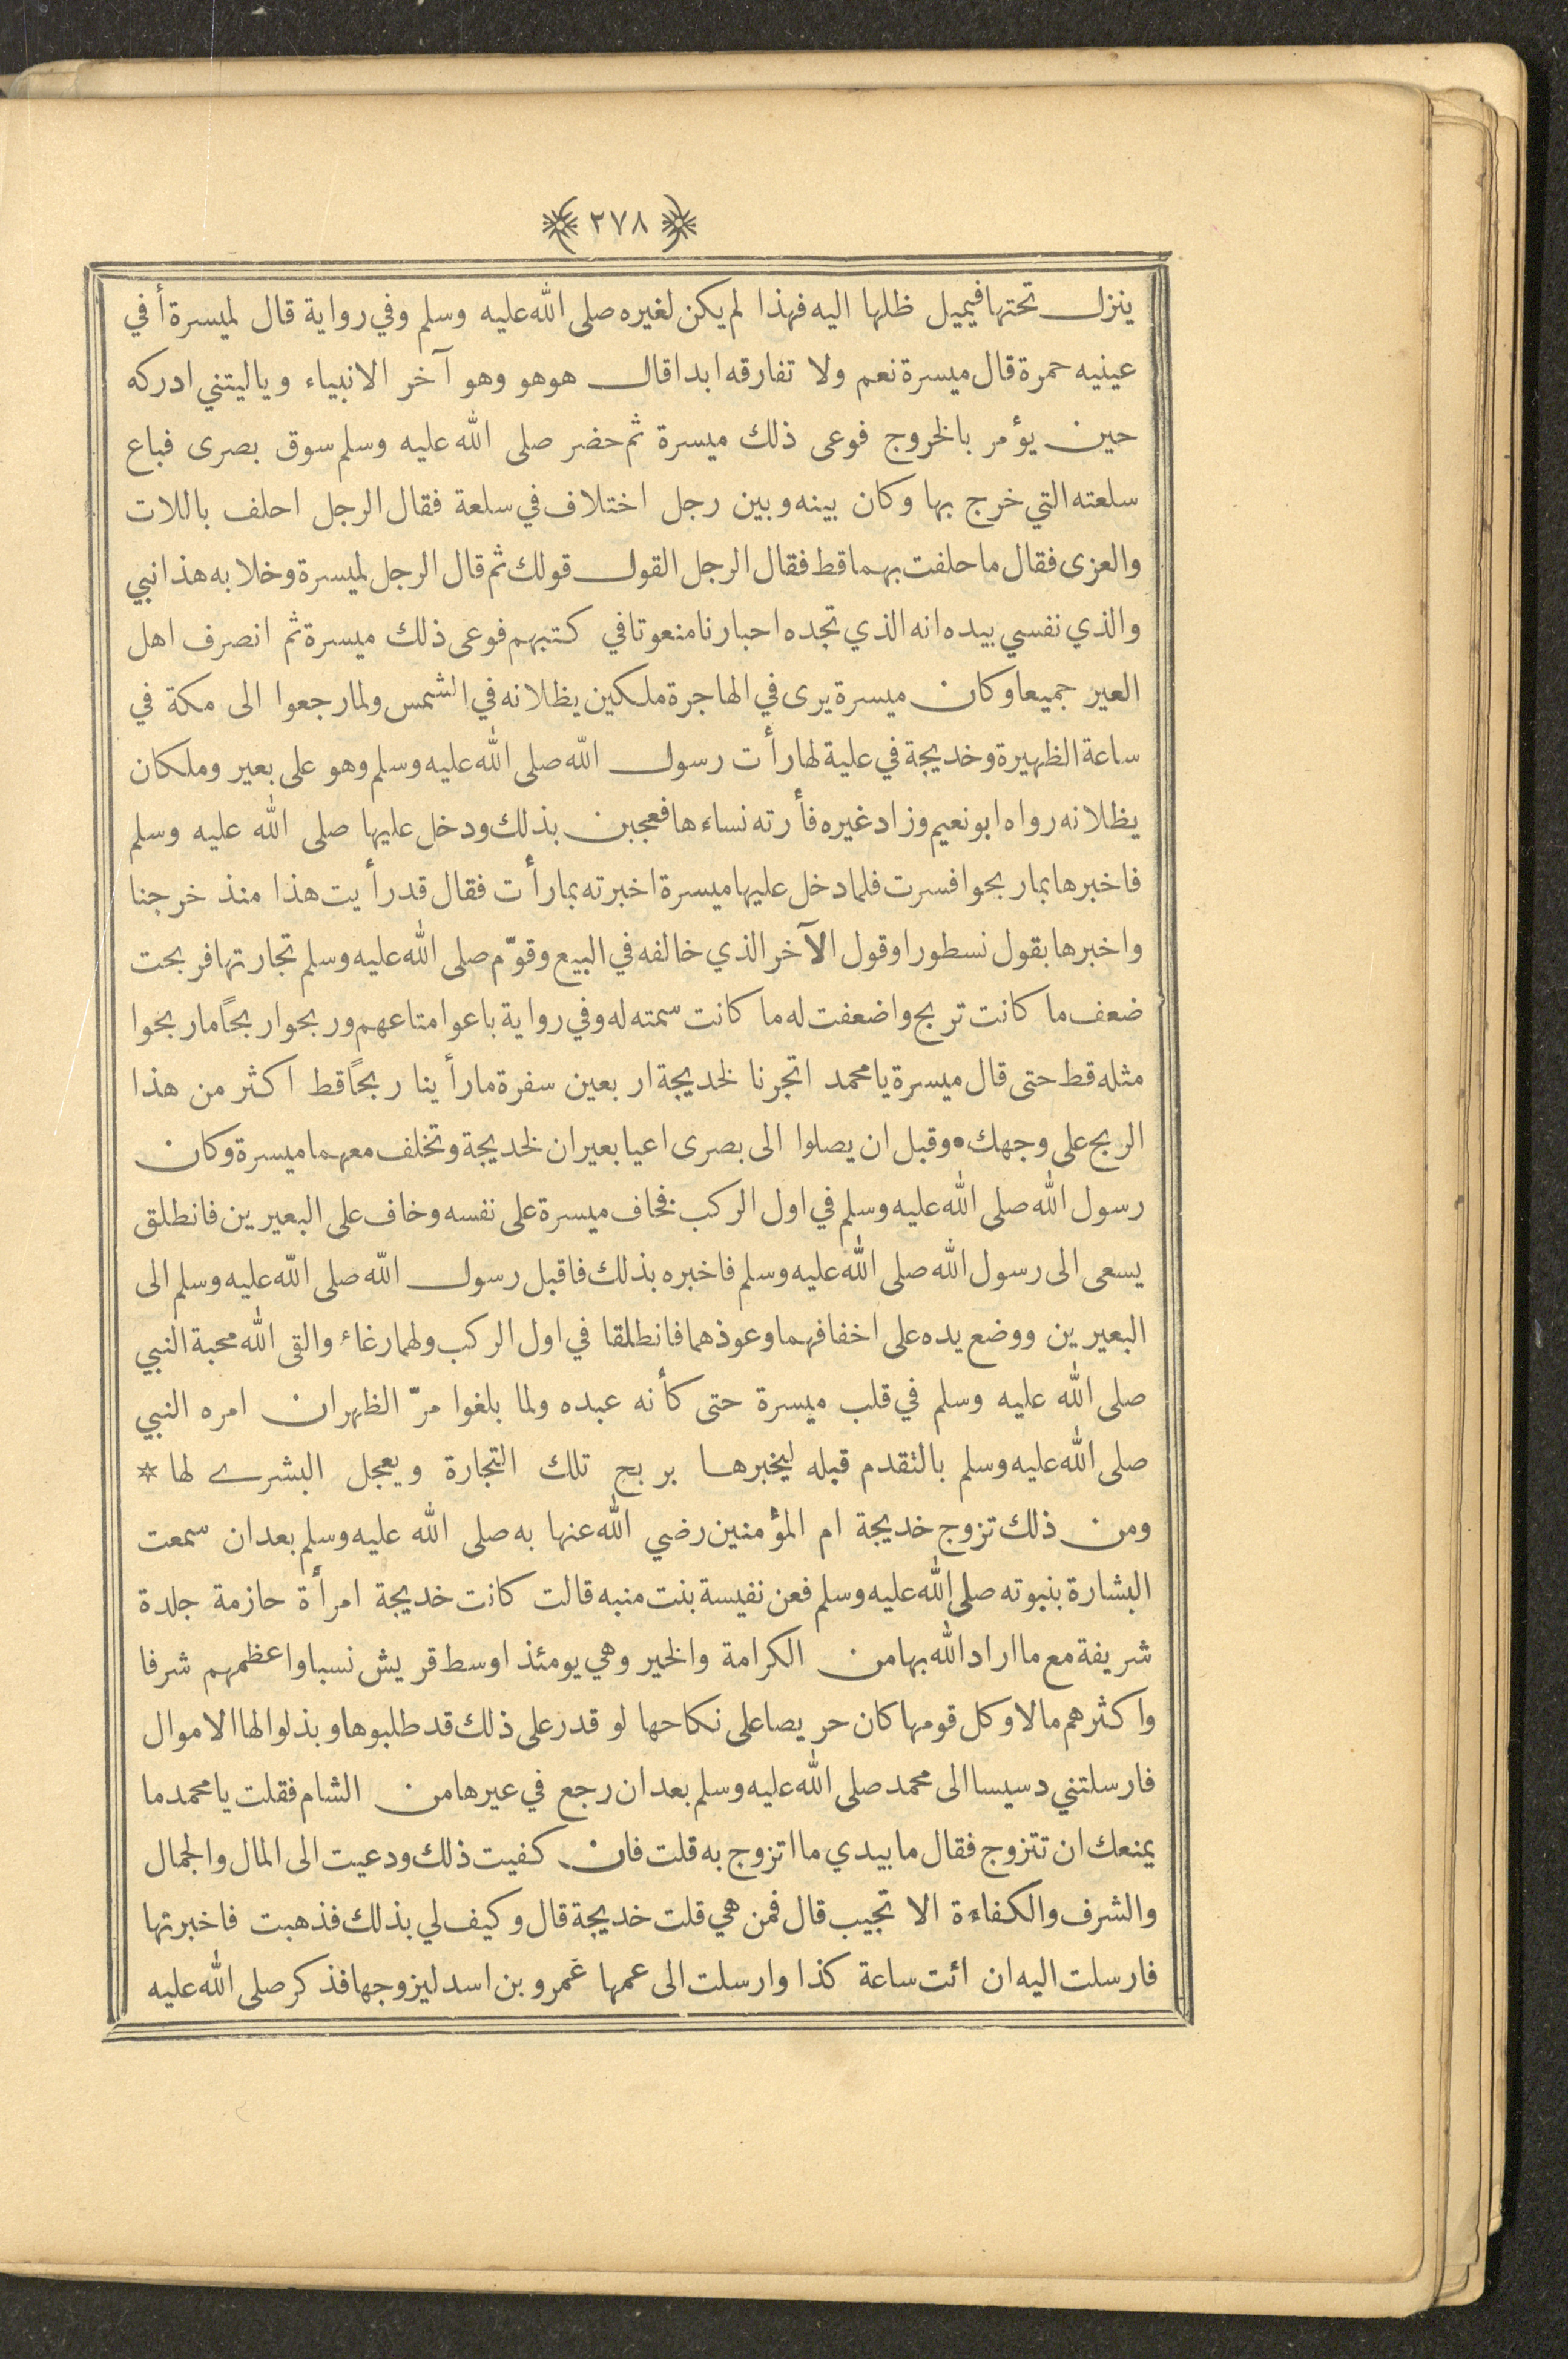 ٢٧٨
ينزل تحتها فيميل ظلها اليه فهذا لم يكن لغيره صلى الله عليه وسلم وفي رواية قال لميسرة أ في
عينيه حمرة قال ميسرة نعم ولا تفارقه ابدا قال هو هو وهو آخر الانبياء وياليتني ادركه
حين يؤمر بالخروج فوعى ذلك ميسرة ثم حضر صلى الله عليه وسلم سوق بصرى فباع
سلعته التي خرج بها وكان بينه وبين رجل اختلاف في سلعة فقال الرجل احلف باللات
والعزى فقال ما حلفت بهما قط فقال الرجل القول قولك ثم قال الرجل لميسرة وخلا به هذا نبي
والذي نفسي بيده انه الذي تجده احبارنا منعوتا في كتبهم فوعى ذلك ميسرة ثم انصرف اهل
العير جميعا وكان ميسرة يرى في الهاجرة ملكين يظلانه في الشمس ولما رجعوا الى مكة في
ساعة الظهيرة وخديجة في علية لها رأت رسول الله صلى الله عليه وسلم وهو على بعير وملكان
يظلانه رواه ابو نعيم وزاد غيره فأرته نساءها فعجبن بذلك ودخل عليها صلى الله عليه وسلم
فاخبرها بما ربحوا فسرت فلما دخل عليها ميسرة اخبرته بما رأت فقال قد رأيت هذا منذ خرجنا
واخبرها بقول نسطورا وقول الآخر الذي خالفه في البيع وقوّم صلى الله عليه وسلم تجارتها فربحت
ضعف ما كانت تربح واضعفت له ما كانت سمته له وفي رواية باعوا متاعهم وربحوا ربحًا ما ربحوا
مثله قط حتى قال ميسرة يا محمد اتجرنا لخديجة اربعين سفرة ما رأينا ربحًا قط اكثر من هذا
الربح على وجهك • وقبل ان يصلوا الى بصرى اعيا بعيران لخديجة وتخلف معهما ميسرة وكان
رسول الله صلى الله عليه وسلم في اول الركب فخاف ميسرة على نفسه وخاف على البعيرين فانطلق
يسعى الى رسول الله صلى الله عليه وسلم فاخبره بذلك فاقبل رسول الله صلى الله عليه وسلم الى
البعيرين ووضع يده على اخفافهما وعوذهما فانطلقا في اول الركب ولهما رغاء والقى الله محبة النبي
صلى الله عليه وسلم في قلب ميسرة حتى كأنه عبده ولما بلغوا مرّ الظهران امره النبي
صلى الله عليه وسلم بالتقدم قبله ليخبرها بربح تلك التجارة ويعجل البشرى لها *
ومن ذلك تزوج خديجة ام المؤمنين رضي الله عنها به صلى الله عليه وسلم بعد ان سمعت
البشارة بنبوته صلى الله عليه وسلم فعن نفيسة بنت منبه قالت كانت خديجة امرأة حازمة جلدة
شريفة مع ما اراد الله بها من الكرامة والخير وهي يومئذ اوسط قريش نسبا واعظمهم شرفا
واكثرهم مالا وكل قومها كان حريصا على نكاحها لو قدر على ذلك قد طلبوها وبذلوا لها الاموال
فارسلتني دسيسا الى محمد صلى الله عليه وسلم بعد ان رجع في عيرها من الشام فقلت يا محمد ما
يمنعك ان تتزوج فقال ما بيدي ما اتزوج به قلت فان كفيت ذلك ودعيت الى المال والجمال
والشرف والكفاءة الا تجيب قال فمن هي قلت خديجة قال وكيف لي بذلك فذهبت فاخبرتها
فارسلت اليه ان ائت ساعة كذا وارسلت الى عمها عَمرو بن اسد ليزوجها فذكر صلى الله عليه